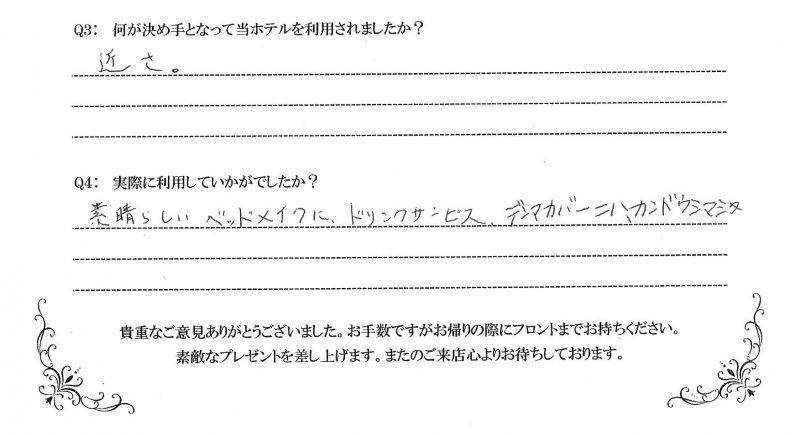 Q3： 何が決め手となって当ホテルを利用されましたか？
近さ。
Q4： 実際に利用していかがでしたか？
素晴らしいベッドメイクに、ドリンクサービス、デンマカバーニハ、カンドウシマシタ
貴重なご意見ありがとうございました。お手数ですがお帰りの際にフロントまでお持ちください。
素敵なプレゼントを差し上げます。またのご来店心よりお待ちしております。